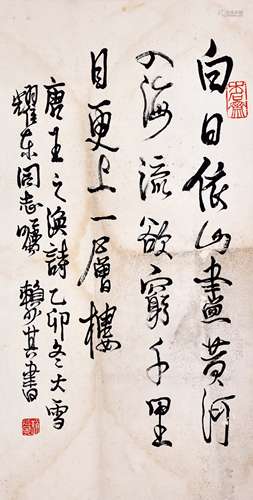 白日依山盡黃河
入海流欲窮千里
目更上一層樓
唐王之渙詩乙卯冬大雪
耀東同志囑 賴少其書